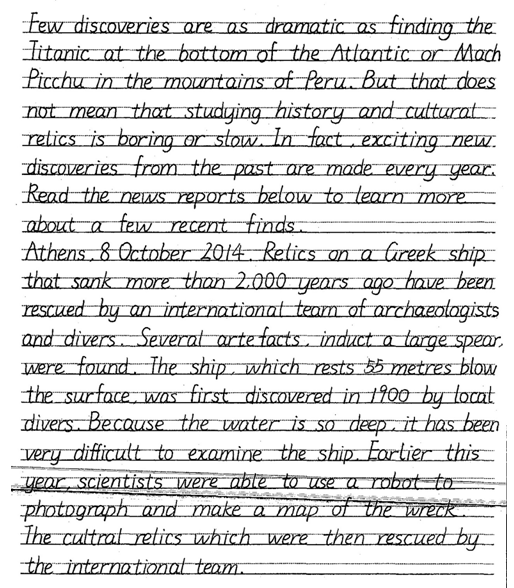 Few discoveries are as dramatic as finding the
Titanic at the bottom of the Atlantic or Mach
Picchu in the mountains of Peru. But that does
not mean that studying history and cultural
relics is boring or slow. In fact, exciting new
discoveries from the past are made every year.
Read the news reports below to learn more
about a few recent finds.
Athens, 8 October 2014. Relics on a Greek ship
that sank more than 2,000 years ago have been
rescued by an international team of archaeologists
and divers. Several arte facts, induct a large spear,
were found. The ship, which rests 55 metres blow
the surface, was first discovered in 1900 by local
divers. Because the water is so deep, it has been
very difficult to examine the ship. Earlier this
year scientists were able to use a robot to
photograph and make a map of the wreck.
The cultral relics which were then rescued by
the international team.